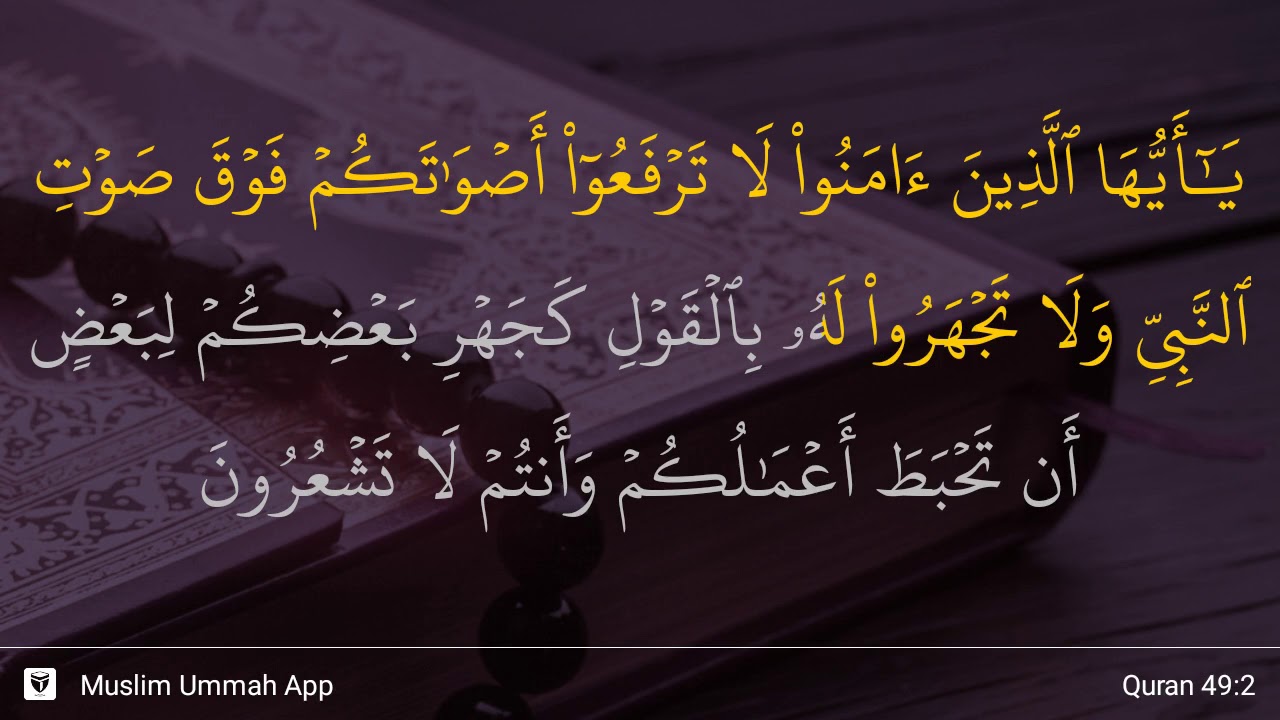 يَـٰٓأَيُّهَا ٱلَّذِينَ ءَامَنُوا۟ لَا تَرْفَعُوٓا۟ أَصْوَٰتَكُمْ فَوْقَ صَوْتِ
ٱلنَّبِىِّ وَلَا تَجْهَرُوا۟ لَهُۥ بِٱلْقَوْلِ كَجَهْرِ بَعْضِكُمْ لِبَعْضٍ
أَن تَحْبَطَ أَعْمَـٰلُكُمْ وَأَنتُمْ لَا تَشْعُرُونَ
Muslim Ummah App
Quran 49:2